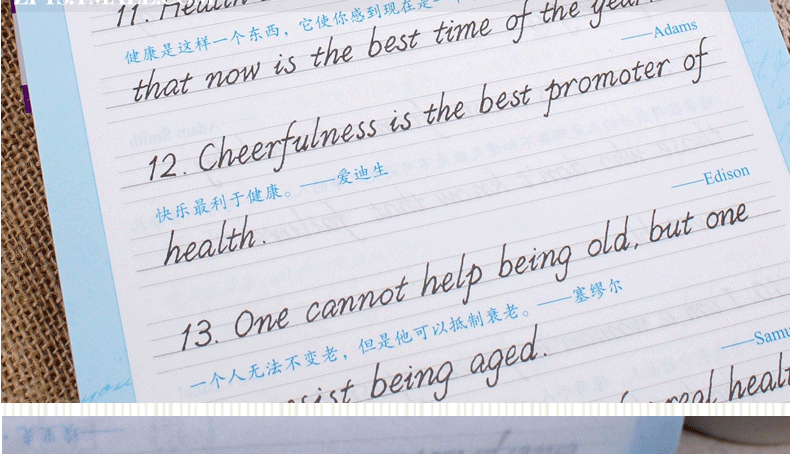 11. Health
健康是这样一个东西，它使你感到现在是一
that now is the best time of the year.
——Adams
12. Cheerfulness is the best promoter of
快乐最利于健康。——爱迪生
——Edison
health.
13. One cannot help being old, but one
一个人无法不变老，但是他可以抵制衰老。——塞缪尔
——Samu
sist being aged.
real healt